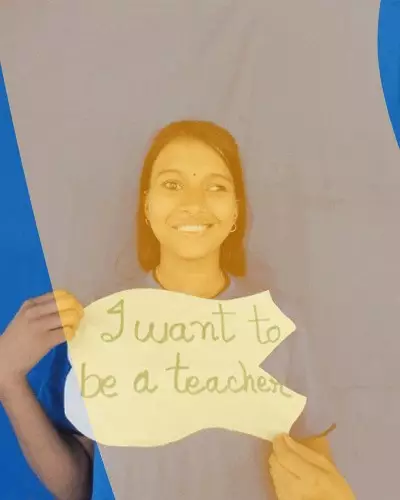 I want to
be a teacher